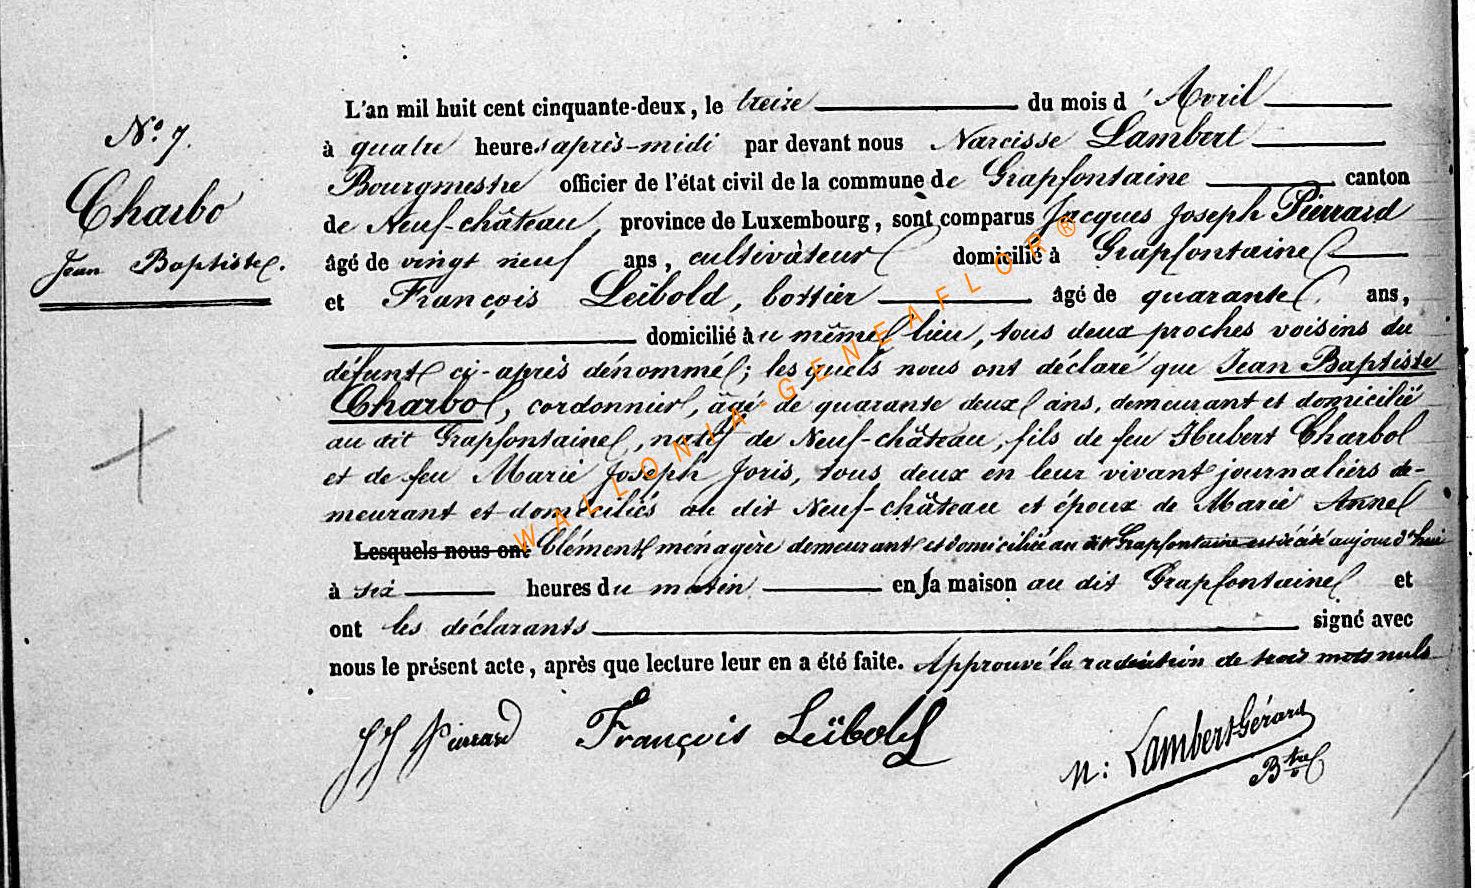 N.° 7.
Charbo
Jean Baptiste.
L'an mil huit cent cinquante-deux, le treize du mois d'Avril
à quatre heures après-midi par devant nous Narcisse Lambert
Bourgmestre officier de l'état civil de la commune de Grapfontaine canton
de Neuf-château, province de Luxembourg, sont comparus Jacques Joseph Pierrard
âgé de vingt neuf ans, cultivateur domicilié à Grapfontaine
et François Leïbold, bottier âgé de quarante ans,
domicilié au même lieu, tous deux proches voisins du
défunt ci-après dénommé; lesquels nous ont déclaré que Jean Baptiste
Charbo, cordonnier, âgé de quarante deux ans, demeurant et domicilié
au dit Grapfontaine, natif de Neuf-château, fils de feu Hubert Charbo
et de feu Marie Joseph Joris, tous deux en leur vivant journaliers de-
meurant et domiciliés au dit Neuf-château et époux de Marie Anne
Lesquels nous ont Clément ménagère demeurant et domiciliée au dit Grapfontaine est décédé aujourd'hui
à six heures du matin en sa maison au dit Grapfontaine et
ont les déclarants signé avec
nous le présent acte, après que lecture leur en a été faite. Approuvé la radiation de trois mots nuls
JJ Pierrard François Leïbold N: Lambert Gérard
Btre
WALLONIA-GENEAFLOR®